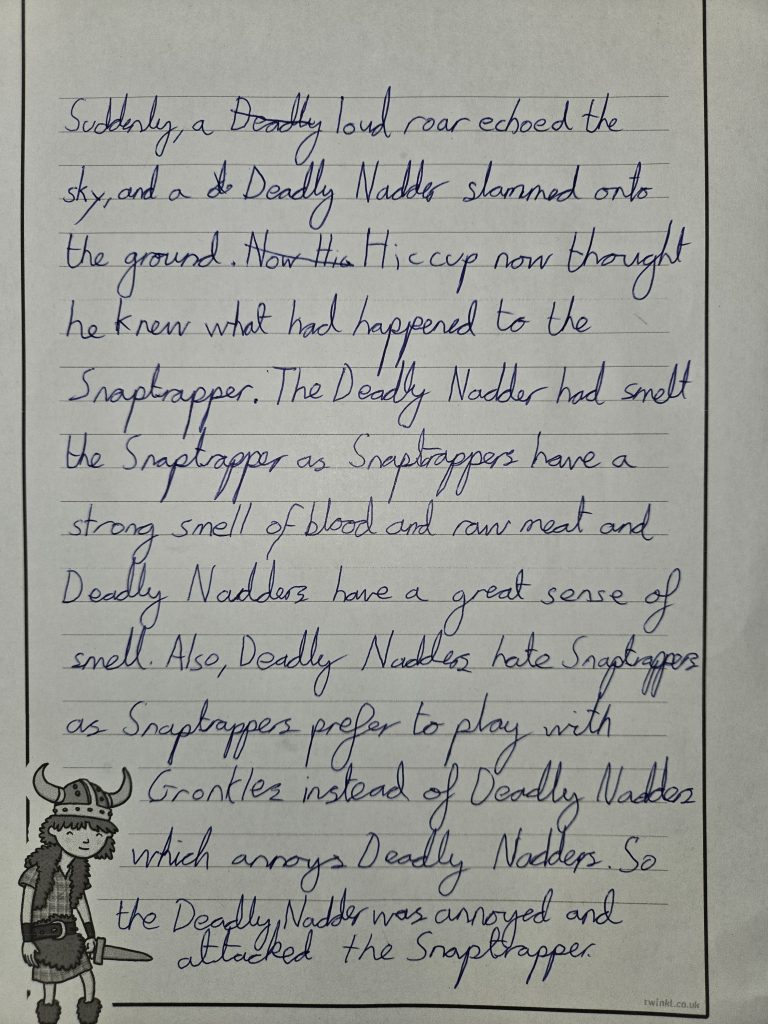 Suddenly, a Deadly loud roar echoed the
sky, and a de Deadly Nadder slammed onto
the ground. Now Hic Hiccup now thought
he knew what had happened to the
Snaptrapper. The Deadly Nadder had smelt
the Snaptrapper as Snaptrappers have a
strong smell of blood and raw meat and
Deadly Nadders have a great sense of
smell. Also, Deadly Nadders hate Snaptrappers
as Snaptrappers prefer to play with
Gronkles instead of Deadly Nadders
which annoys Deadly Nadders. So
the Deadly Nadder was annoyed and
attacked the Snaptrapper.
twinkl.co.uk